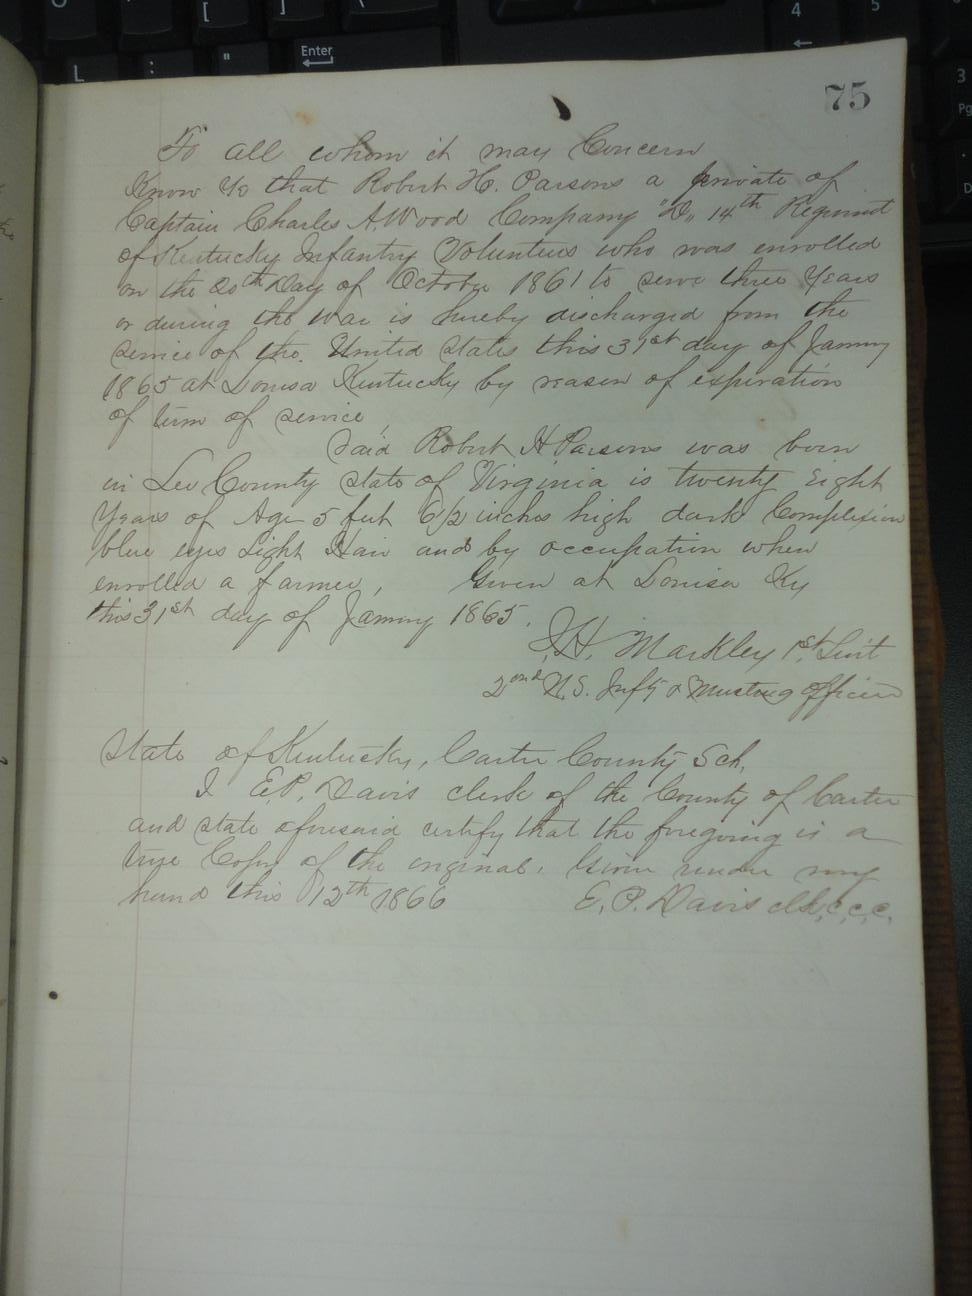 75
To all whom it may Concern
Know Ye that Robert H. Parsons a private of
Captain Charles A. Wood Company "D" 14th Regiment
of Kentucky Infantry Volunteers who was enrolled
on the 20th Day of October 1861 to serve three Years
or during the war is hereby discharged from the
service of the United States this 31st day of January
1865 at Louisa Kentucky by reason of expiration
of term of service
Said Robert H Parsons was born
in Lee County State of Virginia is twenty Eight
Years of Age 5 feet 6 1/2 inches high dark Complexion
blue eyes Light Hair and by occupation when
enrolled a farmer, Given at Louisa Ky
this 31st day of January 1865.
J. H. Markley 1st Lieut
2ond U.S. Infty & Musting officer
State of Kentucky, Carter County Sch,
I E.P. Davis clerk of the County of Carter
and state aforesaid certify that the foregoing is a
true Copy of the original. Given under my
hand this 12th 1866 E. P. Davis Clk, C, C, C,
Enter
L
[
4
5
3